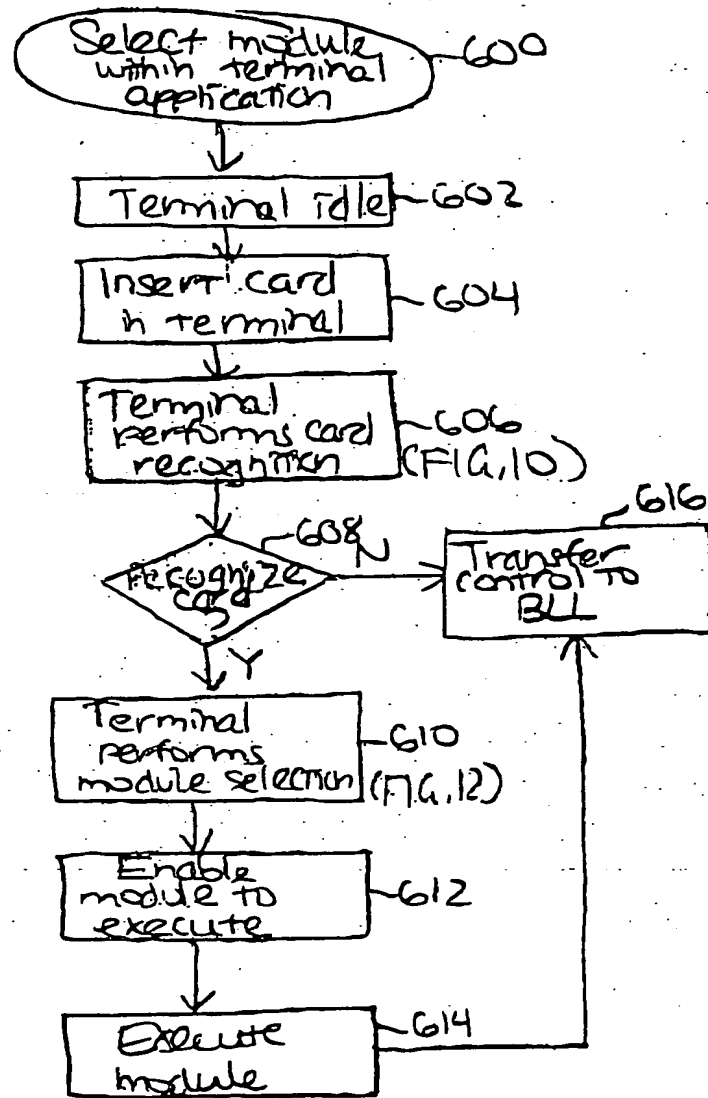 Select module
within terminal
application
600
Terminal idle
602
Insert card
in terminal
604
Terminal
performs card
recognition
606
(FIG. 10)
608
recognize
card
?
N
616
Transfer
control to
BLL
Y
Terminal
performs
module selection
610
(FIG. 12)
Enable
module to
execute
612
Execute
module
614